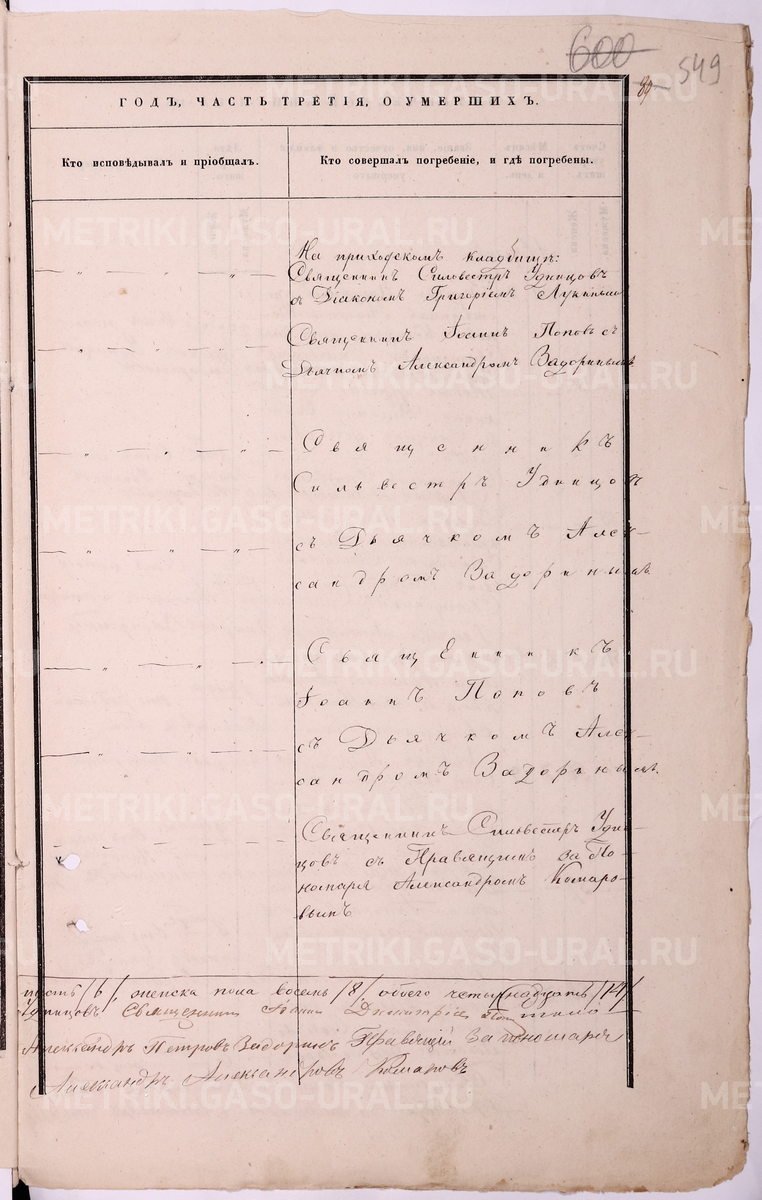 600
549
89
ГОДЪ, ЧАСТЬ ТРЕТІЯ, О УМЕРШИХЪ.
Кто исповѣдывалъ и пріобщалъ.
Кто совершалъ погребеніе, и гдѣ погребены.
На приходскомъ кладбищѣ:
Священникъ Силовестръ Удинцовъ
съ Діакономъ Григоріемъ Лукинымъ
Священникъ Іоаннъ Поповъ съ
Дьячкомъ Александромъ Задоринымъ
Священникъ
Сильвестръ Удинцовъ
съ Дьячкомъ Алек-
сандромъ Задоринымъ
Священникъ
Іоаннъ Поповъ
съ Дьячкомъ Алек-
сандромъ Задоринымъ.
Священникъ Сильвестръ Удин-
цовъ съ Правящимъ за По-
номаря Александромъ Комаро-
вымъ
шесть /6/, женска пола восемь /8/, обоего четырнадцать /14/
Удинцовъ Священникъ Іоаннъ
Александръ Петровъ Задоринъ Правящій За пономаря
Александръ Александровъ Комаровъ
METRIKI.GASO-URAL.RU